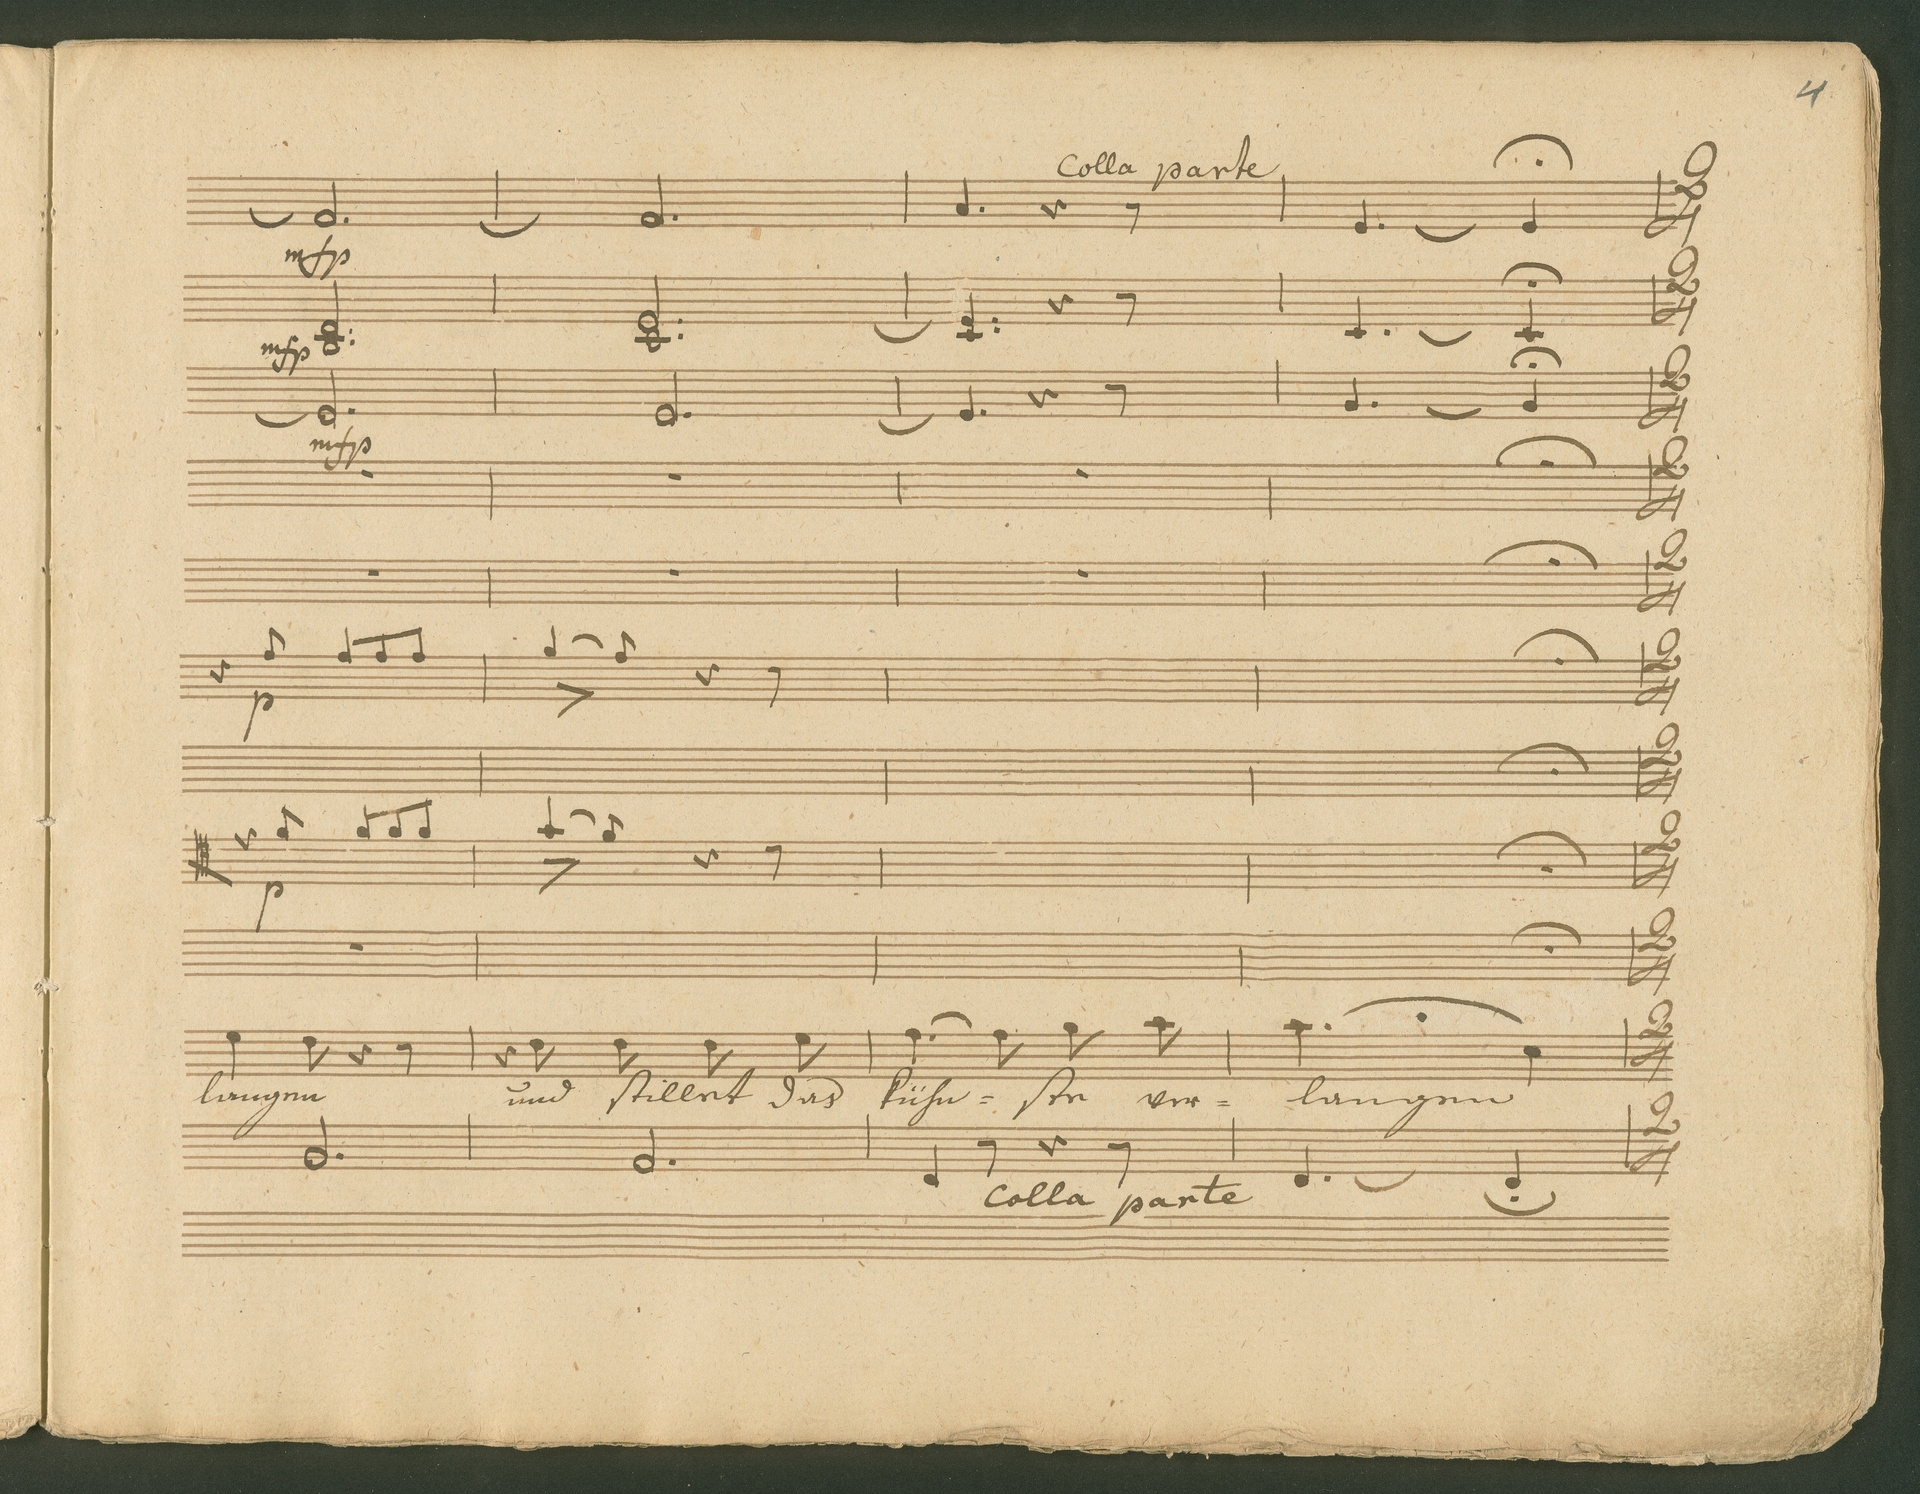 4
Colla parte
mfp
mfp
mfp
p
p
langen und stillet das kühn = ste ver = langen
Colla parte